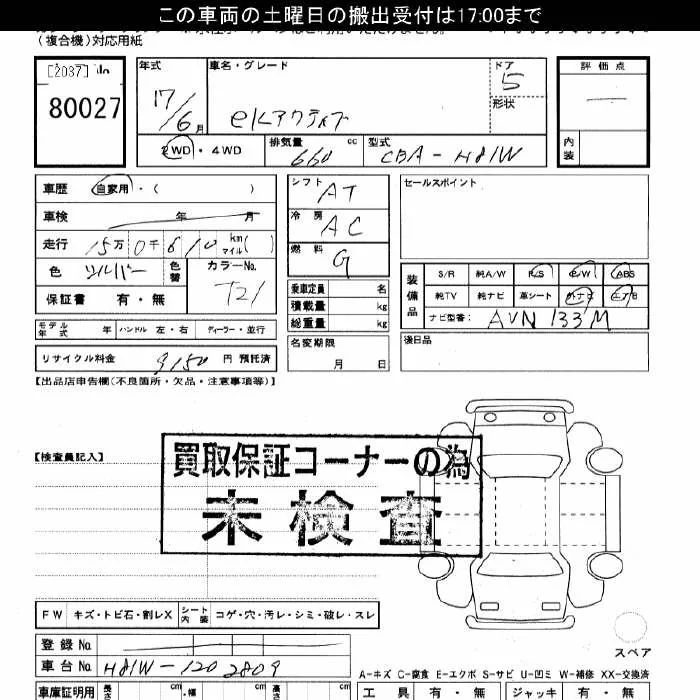 この車両の土曜日の搬出受付は17:00まで
(複合機)対応用紙
[2037] No
80027
年式
17/6月
車名・グレード
eKアクティブ
ドア
5
形状
評価点
内装
2WD・4WD
排気量
660 cc
型式
CBA-H81W
車歴 自家用・( )
車検 年 月
走行 15万0千610 km マイル( )
色 シルバー 色替 カラーNo. T21
保証書 有・無
シフト AT
冷房 AC
燃料 G
乗車定員 名
積載量 kg
総重量 kg
名変期限
月 日
セールスポイント
装備品
S/R 純A/W P/S P/W ABS
純TV 純ナビ 革シート 外ナビ エアB
ナビ型番: AVN 133M
後日品
モデル年式 年 ハンドル 左・右 ディーラー・並行
リサイクル料金 9150 円 預託済
【出品店申告欄(不良箇所・欠品・注意事項等)】
【検査員記入】
買取保証コーナーの為
未検査
FW キズ・トビ石・割レX シート内装 コゲ・穴・汚レ・シミ・破レ・スレ
スペア
登録No.
車台No. H81W-1202809
A-キズ C-腐食 E-エクボ S-サビ U-凹ミ W-補修 XX-交換済
車庫証明用 長さ cm ・幅 cm 高さ cm
工具 有・無 ジャッキ 有・無